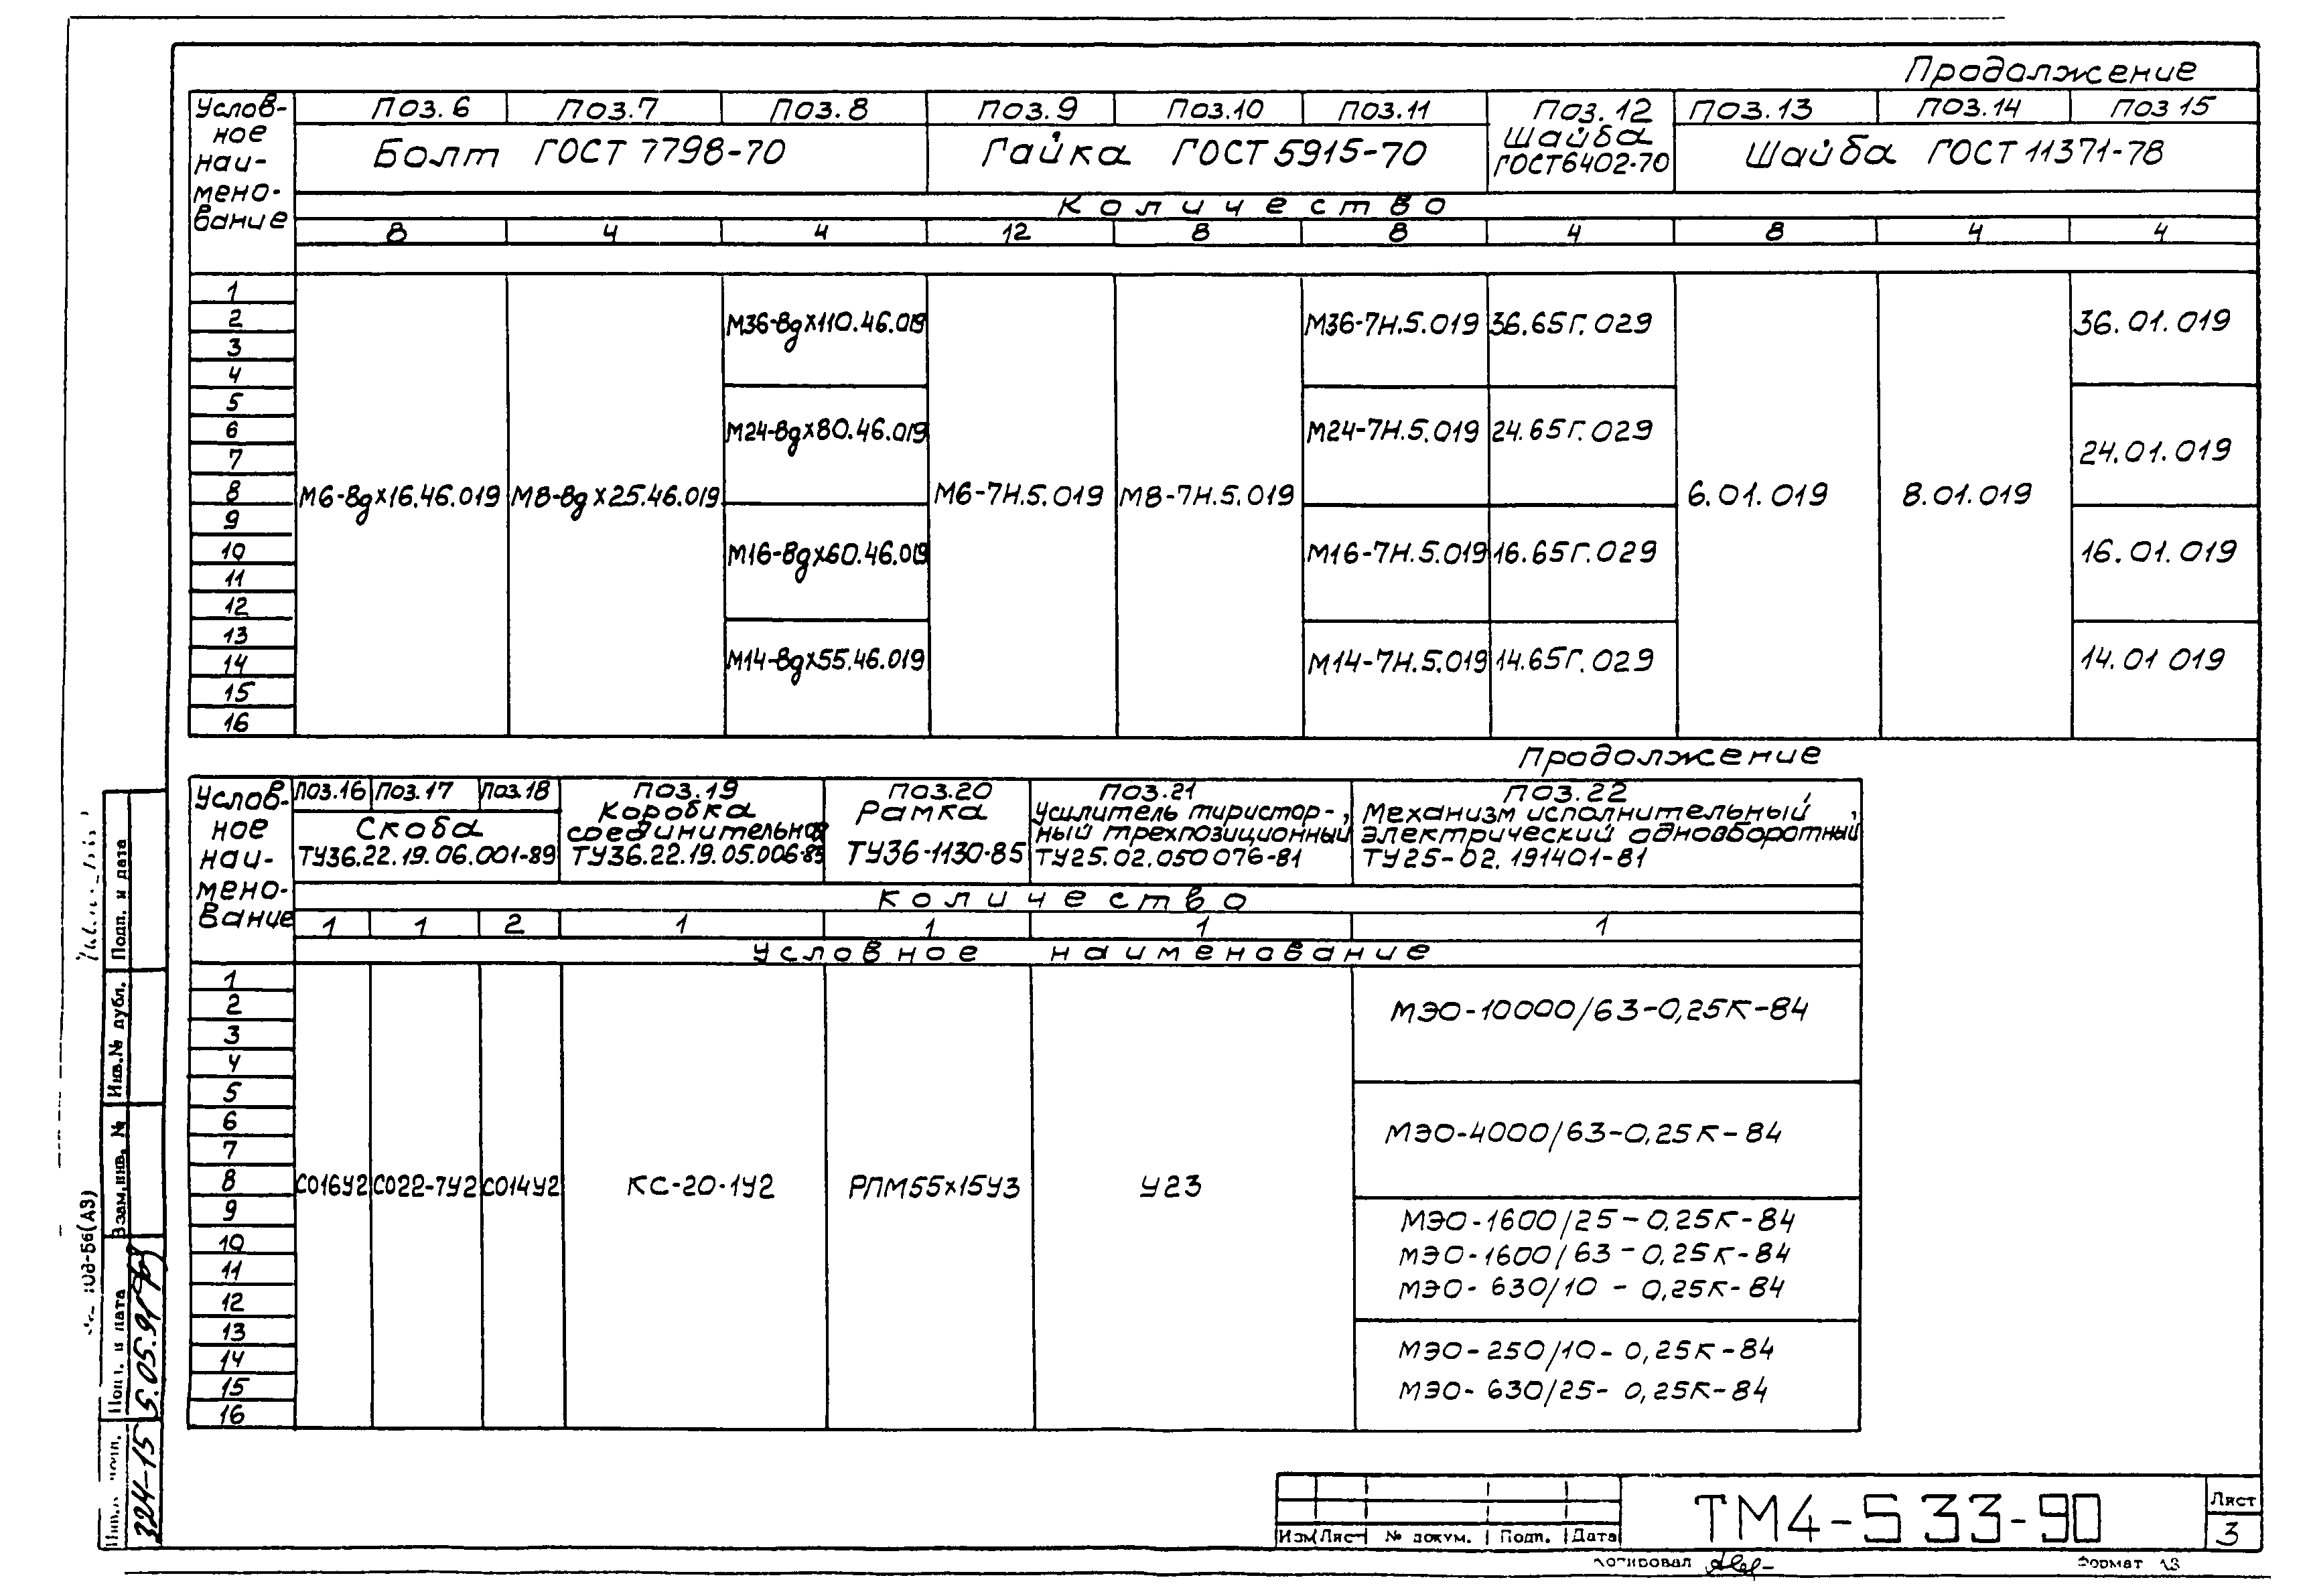 Продолжение
Услов-
ное
наи-
мено-
вание
Поз.6 Поз.7 Поз.8 Поз.9 Поз.10 Поз.11 Поз.12 Поз.13 Поз.14 Поз 15
Болт ГОСТ 7798-70
Гайка ГОСТ 5915-70
Шайба
ГОСТ6402-70
Шайба ГОСТ 11371-78
Количество
8 4 4 12 8 8 4 8 4 4
1
2
3
4
5
6
7
8
9
10
11
12
13
14
15
16
М6-8gх16.46.019
М8-8gх25.46.019
М36-8gх110.46.019
М24-8gх80.46.019
М16-8gх60.46.019
М14-8gх55.46.019
М6-7Н.5.019
М8-7Н.5.019
М36-7Н.5.019
М24-7Н.5.019
М16-7Н.5.019
М14-7Н.5.019
36.65Г.029
24.65Г.029
16.65Г.029
14.65Г.029
6.01.019
8.01.019
36.01.019
24.01.019
16.01.019
14.01 019
Продолжение
Услов-
ное
наи-
мено-
вание
Поз.16 Поз.17 Поз.18
Скоба
ТУ36.22.19.06.001-89
Поз.19
Коробка
соединительная
ТУ36.22.19.05.006-85
Поз.20
Рамка
ТУ36-1130-85
Поз.21
Усилитель тиристор-
ный трехпозиционный
ТУ25.02.050076-81
Поз.22
Механизм исполнительный
электрический однооборотный
ТУ25-02.191401-81
Количество
1 1 2 1 1 1 1
Условное наименование
1
2
3
4
5
6
7
8
9
10
11
12
13
14
15
16
СО16У2
СО22-7У2
СО14У2
КС-20-1У2
РПМ55х15У3
У23
МЭО-10000/63-0,25К-84
МЭО-4000/63-0,25К-84
МЭО-1600/25-0,25К-84
МЭО-1600/63-0,25К-84
МЭО-630/10-0,25К-84
МЭО-250/10-0,25К-84
МЭО-630/25-0,25К-84
Подп. и дата
Инв.№ дубл.
Взам.инв. №
Подп. и дата
5.05.91
324-15
Изм Лист № докум. Подп. Дата
ТМ4-533-90
Лист
3
Копировал
Формат А3